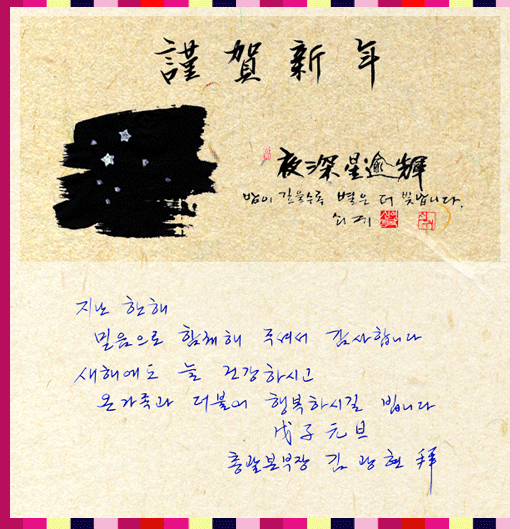 謹賀新年
夜深星逾輝
밤이 깊을수록 별은 더 빛납니다.
지난 한해
믿음으로 함께해 주셔서 감사합니다
새해에도 늘 건강하시고
온가족과 더불어 행복하시길 빕니다
戊子 元旦
총괄본부장 김광현 拜